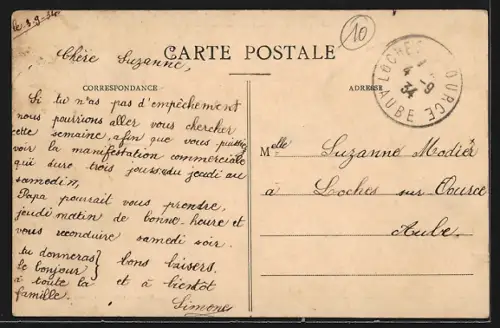 le 3-9-34
10
Chère Suzanne,
CARTE POSTALE
CORRESPONDANCE
ADRESSE
LOCHES OURCE
4 -9
34
AUBE
Si tu n'as pas d'empêchement
nous pourrions aller vous chercher
cette semaine, afin que vous puissiez
voir la manifestation commerciale
qui dure trois jours du jeudi au
samedi,
Papa pourrait vous prendre,
jeudi matin de bonne-heure et
vous reconduire samedi soir.
tu donneras
le bonjour
à toute la
famille.
bons baisers.
et à bientôt
Simone
Melle Suzanne Modiér
à Loches sur Ource
Aube.